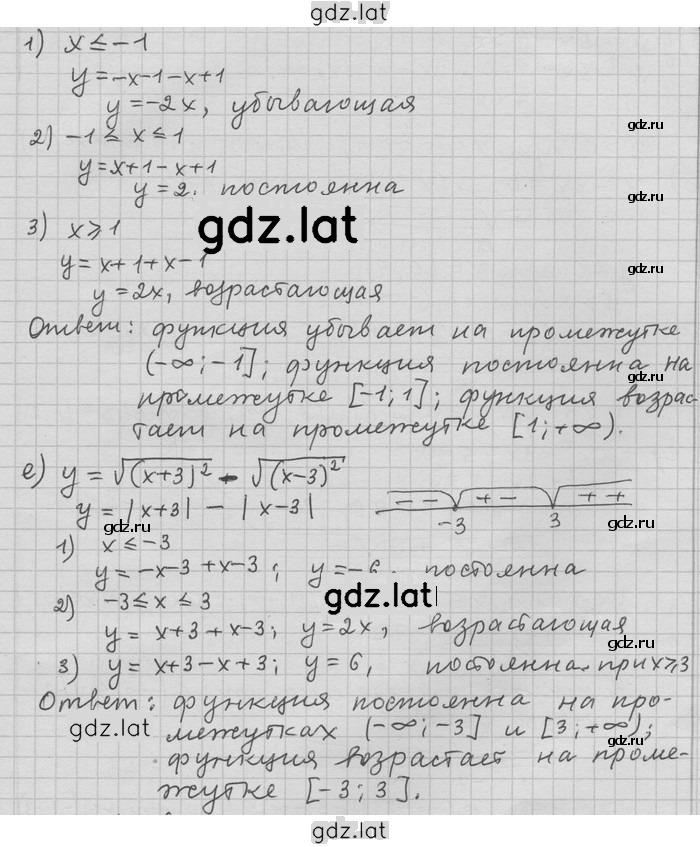 gdz.lat
1) x ≤ −1
y = −x−1−x+1
gdz.ru
y = −2x, убывающая
gdz.ru
2) −1 ≤ x ≤ 1
y = x+1−x+1
y = 2. постоянна
gdz.ru
3) x ≥ 1
gdz.lat
y = x+1+x−1
gdz.ru
y = 2x, возрастающая
Ответ: функция убывает на промежутке
gdz.ru
(−∞; −1]; функция постоянна на
gdz.ru
промежутке [−1; 1]; функция возрас-
тает на промежутке [1; +∞).
е) y = √(x+3)² − √(x−3)²
− − + − + +
y = |x+3| − |x−3|
−3 3
gdz.ru
gdz.ru
1) x ≤ −3
y = −x−3 + x−3; y = −6. постоянна
gdz.ru
gdz.lat
2) −3 ≤ x ≤ 3
y = x+3 + x−3; y = 2x, возрастающая
gdz.ru
3) y = x+3−x+3; y = 6, постоянна при x ≥ 3
Ответ: функция постоянна на про-
gdz.lat
межутках (−∞; −3] и [3; +∞);
gdz.ru
функция возрастает на проме-
жутке [−3; 3].
gdz.lat